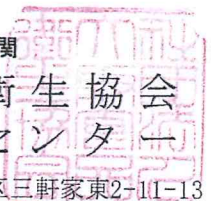 関
衛生協会
センター
区三軒家東2-11-13